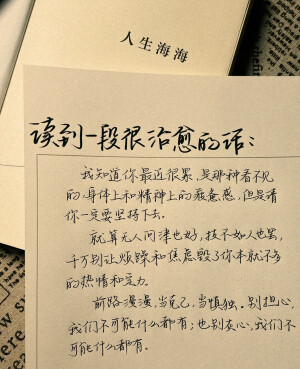 人生海海
读到一段很治愈的话:
我知道你最近很累,是那种看不见
的、身体上和精神上的疲惫感,但是请
你一定要坚持下去。
就算无人问津也好,技不如人也罢,
千万别让烦躁和焦虑毁了你本就不多
的热情和定力。
前路漫漫,当克己,当慎独。别担心,
我们不可能什么都有;也别灰心,我们不
可能什么都没有。